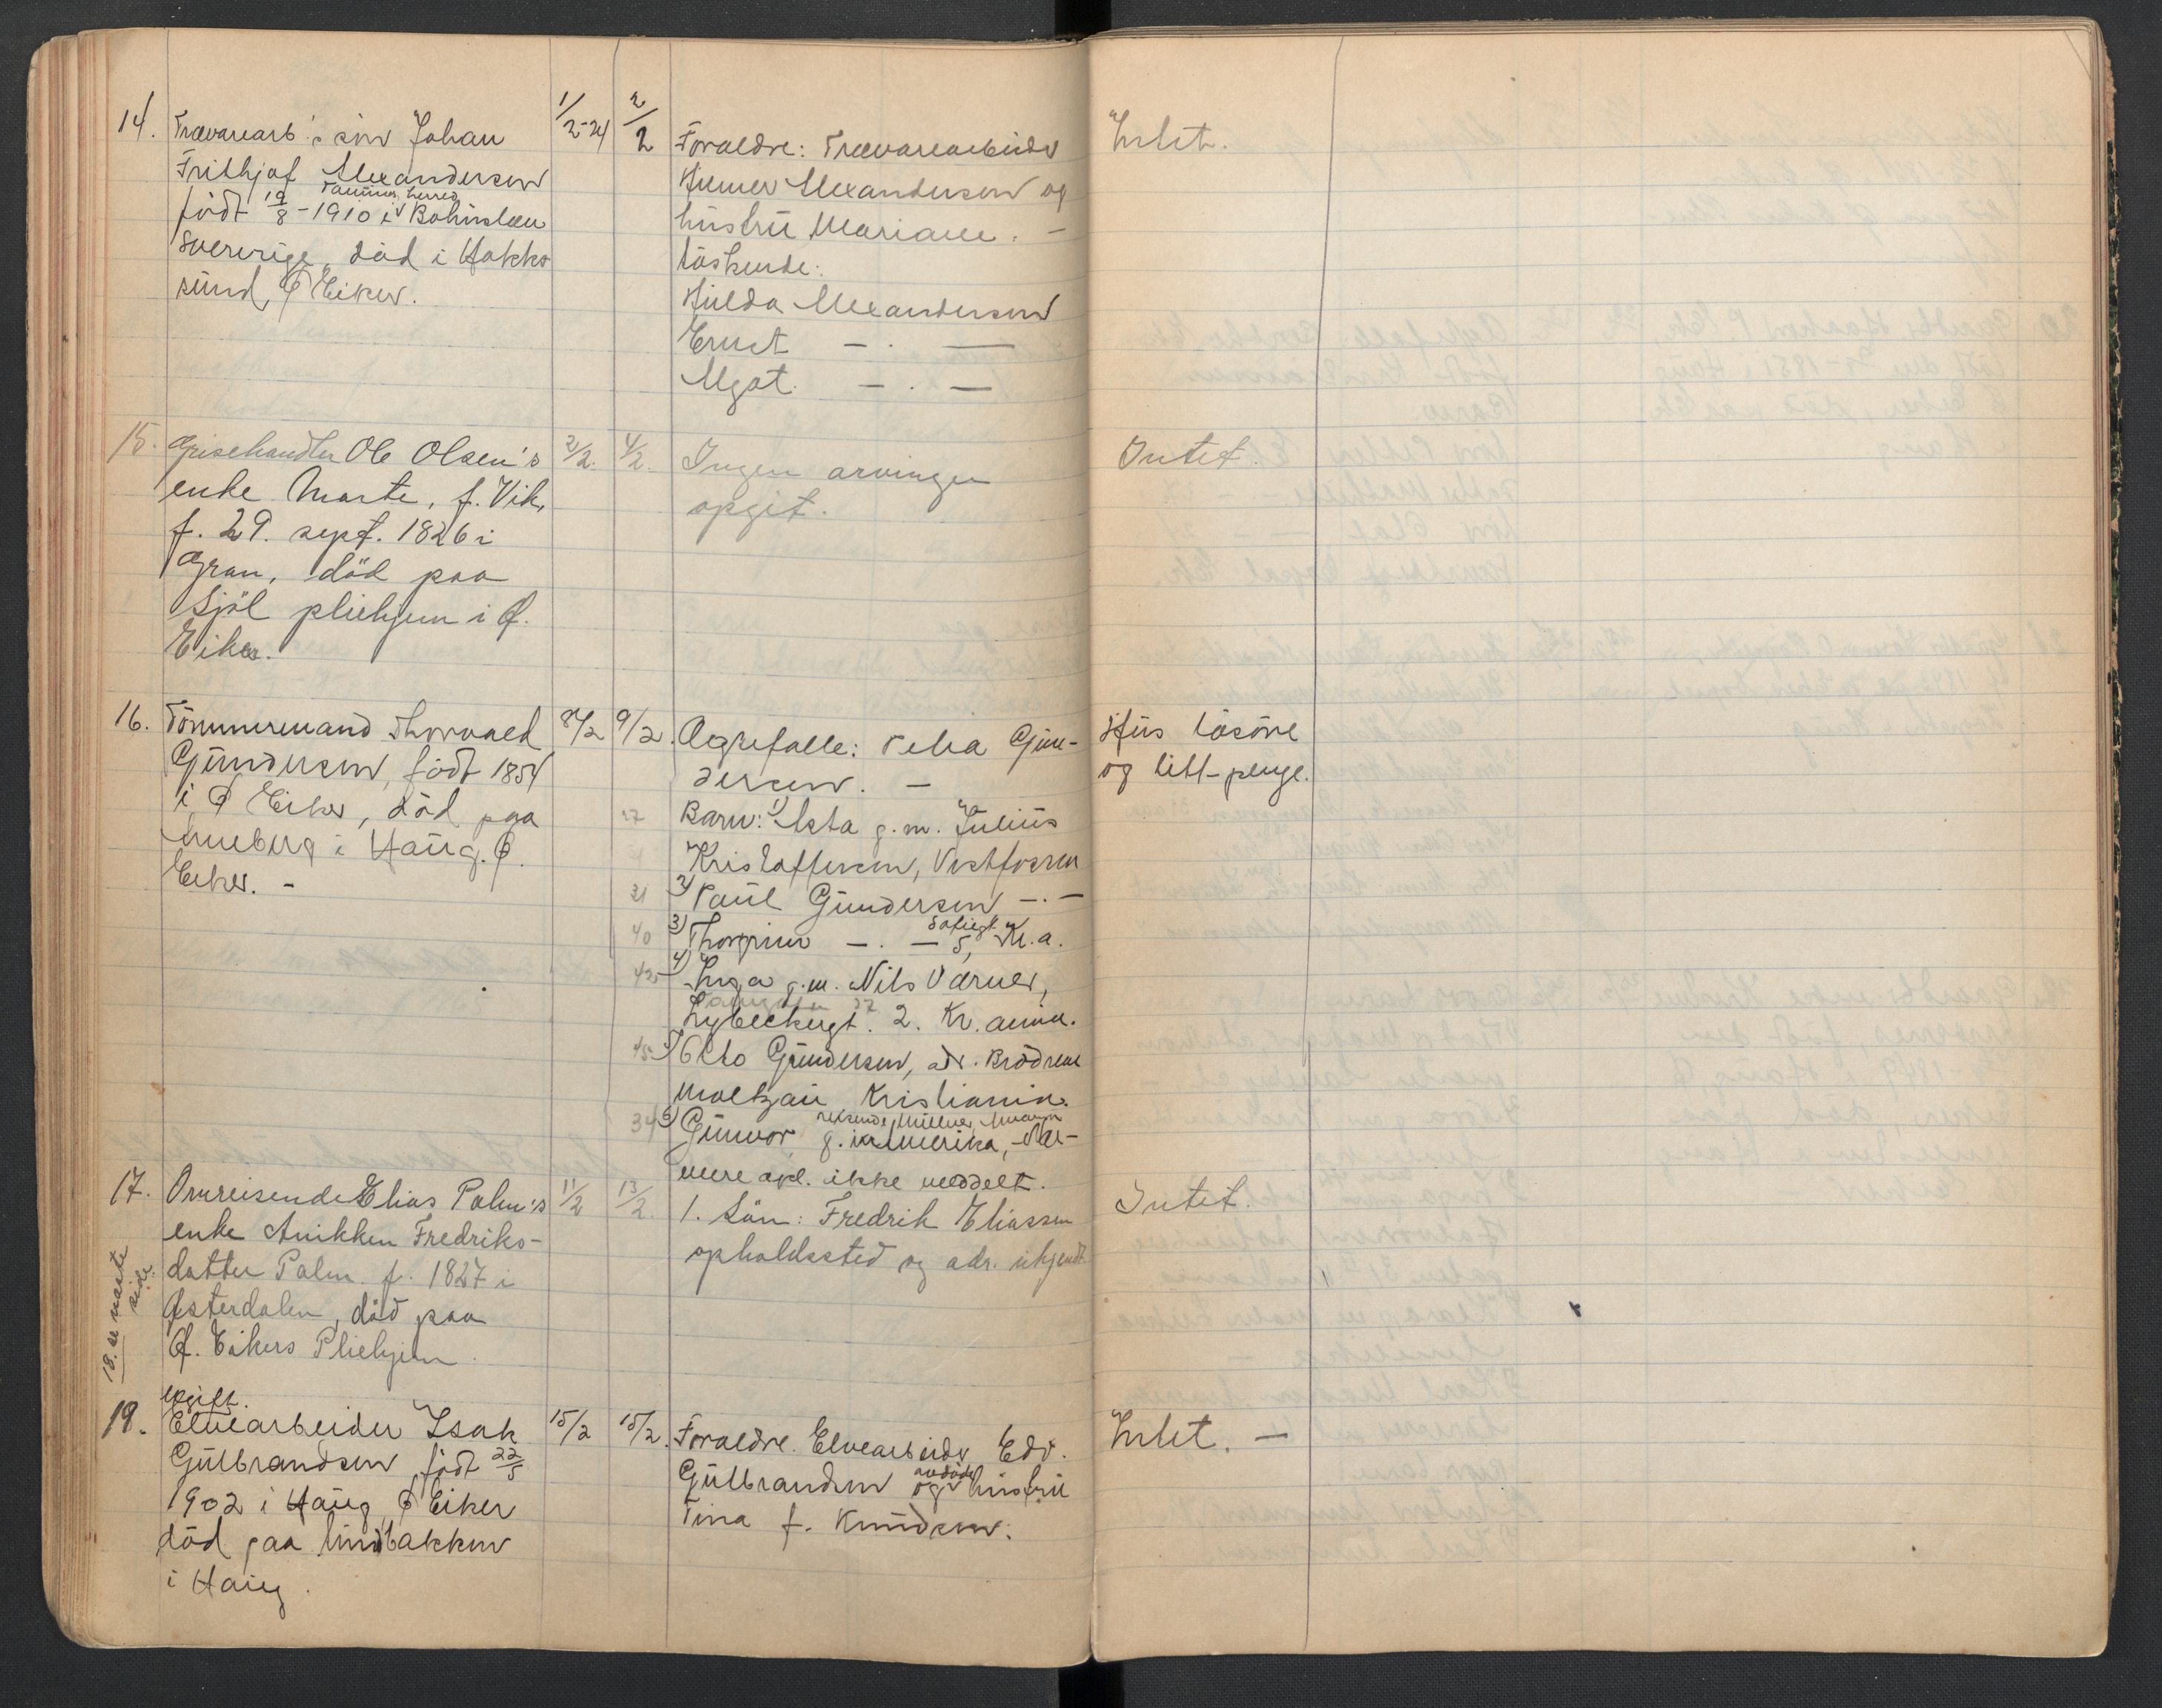 14.
Trævarearb's søn Johan
Frithjof Alexandersen
Tanums herred
født 19/8 - 1910 i Bohuslæn
Sverige, død i Hokks
sund, Ø Eiker.
1/2-24
2/2
Forældre: Trævarearbeider
Hilmer Alexandersen og
hustru Mariane. -
Søskende:
Hulda Alexandersen
Ernst — . —
Algot. — . —
Intet.
15.
Grisehandler Ole Olsen's
enke Marte, f. Vik,
f. 29. sept. 1826 i
Gran, død paa
Sjøl pliehjem i Ø.
Eiker.
2/2.
4/2.
Ingen arvinger
opgit.
Intet.
16.
Tømmermand Thorvald
Gundersen, født 1854
i Ø Eiker, død paa
i Haug. Ø.
Eiker. -
8/2
9/2.
Ægtefælle: Gun-
dersen. -
27 Barn: 1) Asta g.m. Julius
Kristoffersen, Vestfossen
31 2) Paul Gundersen — . —
Sofiegt.
40 3) Thorfinn — . — 5, Kr.a.
42 4) Inga g.m. Nils Varner,
Lybeckergt. 2. Kr.ania.
45 5) Otto Gundersen, adr. Brødrene
Moltzau Kristiania.
34 6) Gunvor g. i Amerika, Nær-
mere opl. ikke meddelt.
Hus løsøre
og litt penge.
17.
Omreisende Elias Palm's
enke Anikken Fredriks-
datter Palm. f. 1827 i
Østerdalen, død paa
Ø. Eikers Pliehjem.
11/2
13/2.
1. Søn: Fredrik Eliassen
opholdssted og adr. ukjendt.
Intet.
18. se næste
side.
19.
ugift.
Elvearbeider Isak
Gulbrandsen, født 22/5
1902 i Haug, Ø Eiker
død paa Lundbakken
i Haug.
15/2
15/2.
Forældre. Elvearbeider Edv.
avdøde
Gulbrandsen og hustru
Tina f. Knudsen.
Intet. —